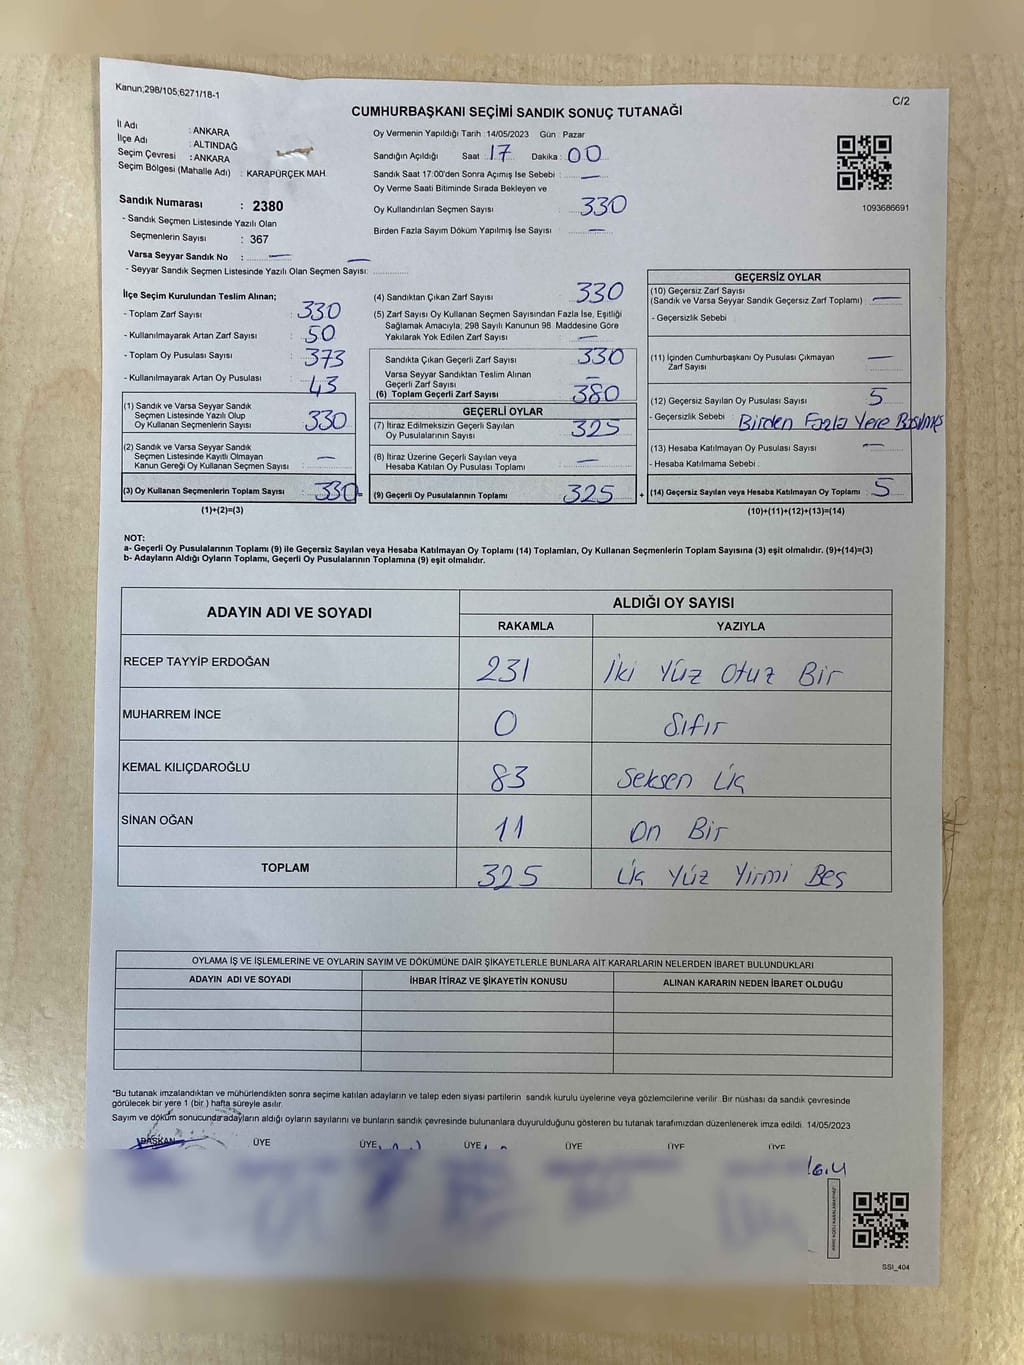 Kanun;298/105,6271/18-1
C/2
CUMHURBAŞKANI SEÇİMİ SANDIK SONUÇ TUTANAĞI
İl Adı : ANKARA
İlçe Adı : ALTINDAĞ
Seçim Çevresi : ANKARA
Seçim Bölgesi (Mahalle Adı) : KARAPÜRÇEK MAH.
Sandık Numarası : 2380
- Sandık Seçmen Listesinde Yazılı Olan
Seçmenlerin Sayısı : 367
Varsa Seyyar Sandık No : —
- Seyyar Sandık Seçmen Listesinde Yazılı Olan Seçmen Sayısı: —
Oy Vermenin Yapıldığı Tarih :14/05/2023 Gün : Pazar
Sandığın Açıldığı Saat : 17 Dakika : 00
Sandık Saat 17:00'den Sonra Açımış İse Sebebi : —
Oy Verme Saati Bitiminde Sırada Bekleyen ve
Oy Kullandırılan Seçmen Sayısı 330
Birden Fazla Sayım Döküm Yapılmış İse Sayısı —
1093686691
İlçe Seçim Kurulundan Teslim Alınan;
- Toplam Zarf Sayısı : 330
- Kullanılmayarak Artan Zarf Sayısı : 50
- Toplam Oy Pusulası Sayısı : 373
- Kullanılmayarak Artan Oy Pusulası : 43
(1) Sandık ve Varsa Seyyar Sandık
Seçmen Listesinde Yazılı Olup
Oy Kullanan Seçmenlerin Sayısı : 330
(2) Sandık ve Varsa Seyyar Sandık
Seçmen Listesinde Kayıtlı Olmayan
Kanun Gereği Oy Kullanan Seçmen Sayısı : —
(3) Oy Kullanan Seçmenlerin Toplam Sayısı : 330
(1)+(2)=(3)
(4) Sandıktan Çıkan Zarf Sayısı 330
(5) Zarf Sayısı Oy Kullanan Seçmen Sayısından Fazla İse, Eşitliği
Sağlamak Amacıyla; 298 Sayılı Kanunun 98. Maddesine Göre
Yakılarak Yok Edilen Zarf Sayısı : —
Sandıkta Çıkan Geçerli Zarf Sayısı 330
Varsa Seyyar Sandıktan Teslim Alınan
Geçerli Zarf Sayısı —
(6) Toplam Geçerli Zarf Sayısı 380
GEÇERLİ OYLAR
(7) İtiraz Edilmeksizin Geçerli Sayılan
Oy Pusulalarının Sayısı 325
(8) İtiraz Üzerine Geçerli Sayılan veya
Hesaba Katılan Oy Pusulası Toplamı —
(9) Geçerli Oy Pusulalarının Toplamı 325
+
GEÇERSİZ OYLAR
(10) Geçersiz Zarf Sayısı
(Sandık ve Varsa Seyyar Sandık Geçersiz Zarf Toplamı) : —
- Geçersizlik Sebebi :
(11) İçinden Cumhurbaşkanı Oy Pusulası Çıkmayan
Zarf Sayısı —
(12) Geçersiz Sayılan Oy Pusulası Sayısı 5
- Geçersizlik Sebebi : Birden Fazla Yere Basılmış
(13) Hesaba Katılmayan Oy Pusulası Sayısı —
- Hesaba Katılmama Sebebi :
(14) Geçersiz Sayılan veya Hesaba Katılmayan Oy Toplamı 5
(10)+(11)+(12)+(13)=(14)
NOT:
a- Geçerli Oy Pusulalarının Toplamı (9) ile Geçersiz Sayılan veya Hesaba Katılmayan Oy Toplamı (14) Toplamları, Oy Kullanan Seçmenlerin Toplam Sayısına (3) eşit olmalıdır. (9)+(14)=(3)
b- Adayların Aldığı Oyların Toplamı, Geçerli Oy Pusulalarının Toplamına (9) eşit olmalıdır.
ADAYIN ADI VE SOYADI ALDIĞI OY SAYISI
RAKAMLA YAZIYLA
RECEP TAYYİP ERDOĞAN 231 İki Yüz Otuz Bir
MUHARREM İNCE 0 Sıfır
KEMAL KILIÇDAROĞLU 83 Seksen Üç
SİNAN OĞAN 11 On Bir
TOPLAM 325 Üç Yüz Yirmi Beş
OYLAMA İŞ VE İŞLEMLERİNE VE OYLARIN SAYIM VE DÖKÜMÜNE DAİR ŞİKAYETLERLE BUNLARA AİT KARARLARIN NELERDEN İBARET BULUNDUKLARI
ADAYIN ADI VE SOYADI İHBAR İTİRAZ VE ŞİKAYETİN KONUSU ALINAN KARARIN NEDEN İBARET OLDUĞU
"Bu tutanak imzalandıktan ve mühürlendikten sonra seçime katılan adayların ve talep eden siyasi partilerin sandık kurulu üyelerine veya gözlemcilerine verilir. Bir nüshası da sandık çevresinde
görülecek bir yere 1 (bir ) hafta süreyle asılır.
Sayım ve döküm sonucunda adayların aldığı oyların sayılarını ve bunların sandık çevresinde bulunanlara duyurulduğunu gösteren bu tutanak tarafımızdan düzenlenerek imza edildi. 14/05/2023
BAŞKAN ÜYE ÜYE ÜYE ÜYE ÜYE ÜYE
SSI_404